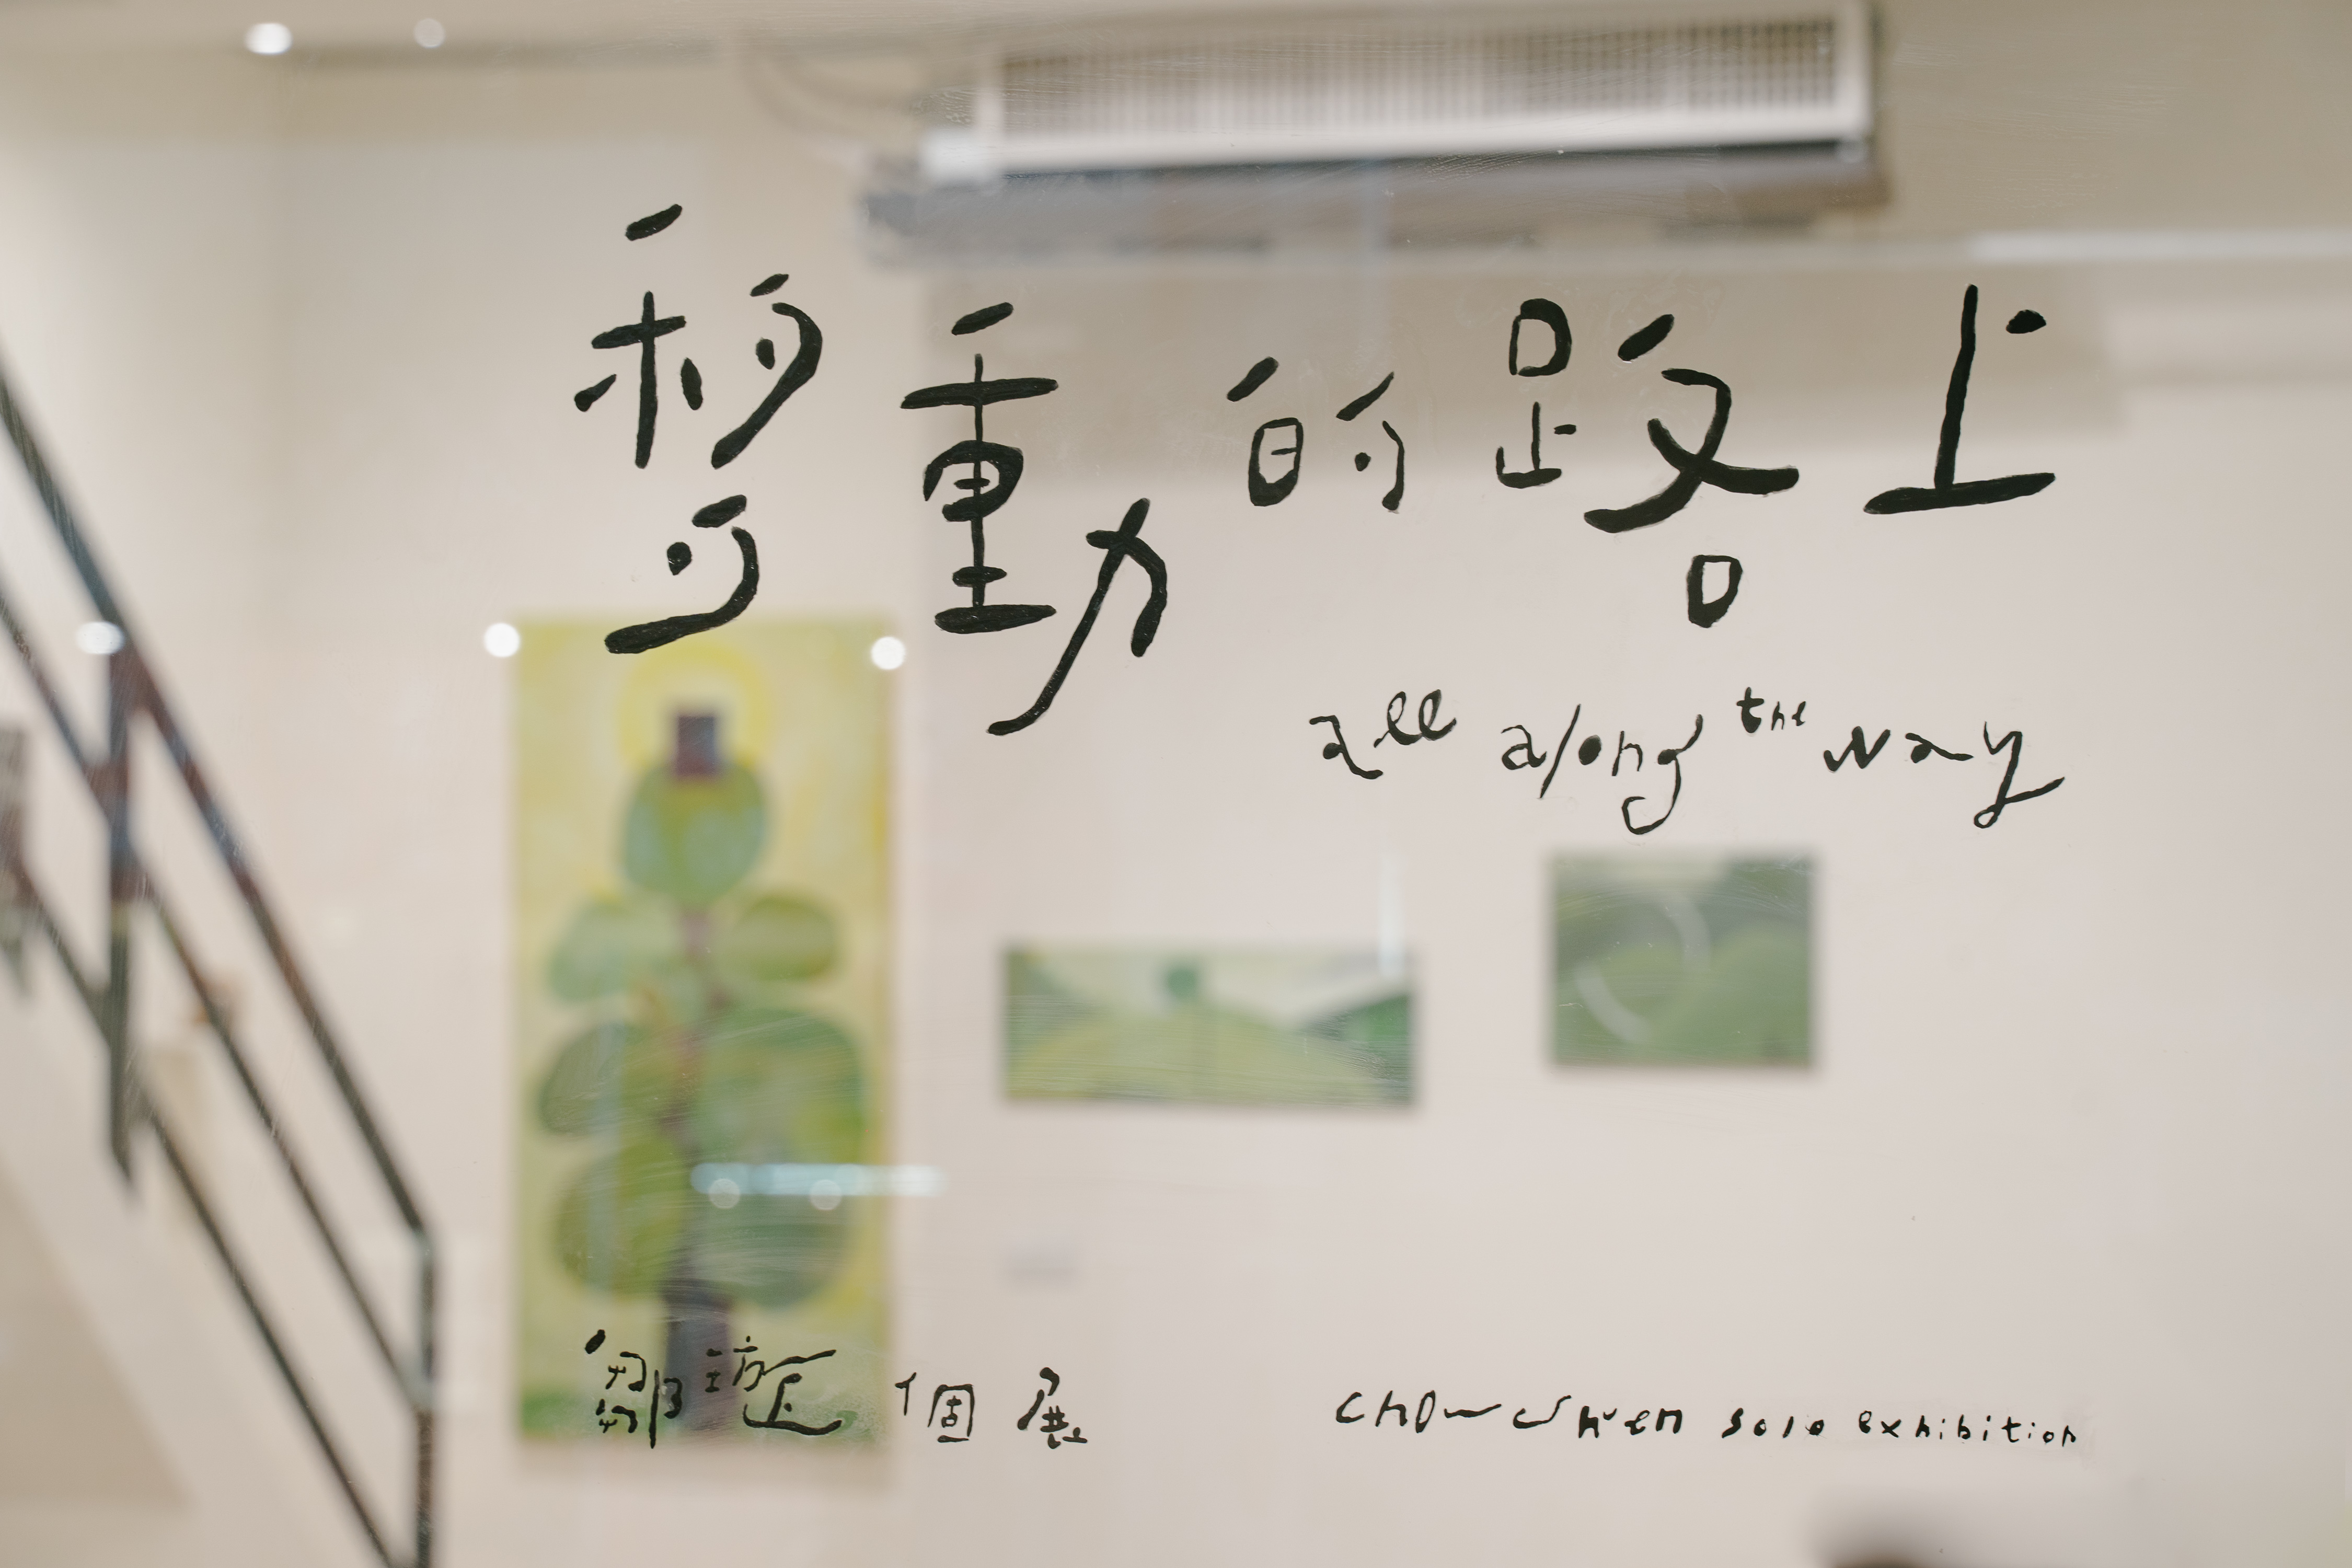 移動的路上
all along the way
鄒璇 個展 chow shuen solo exhibition